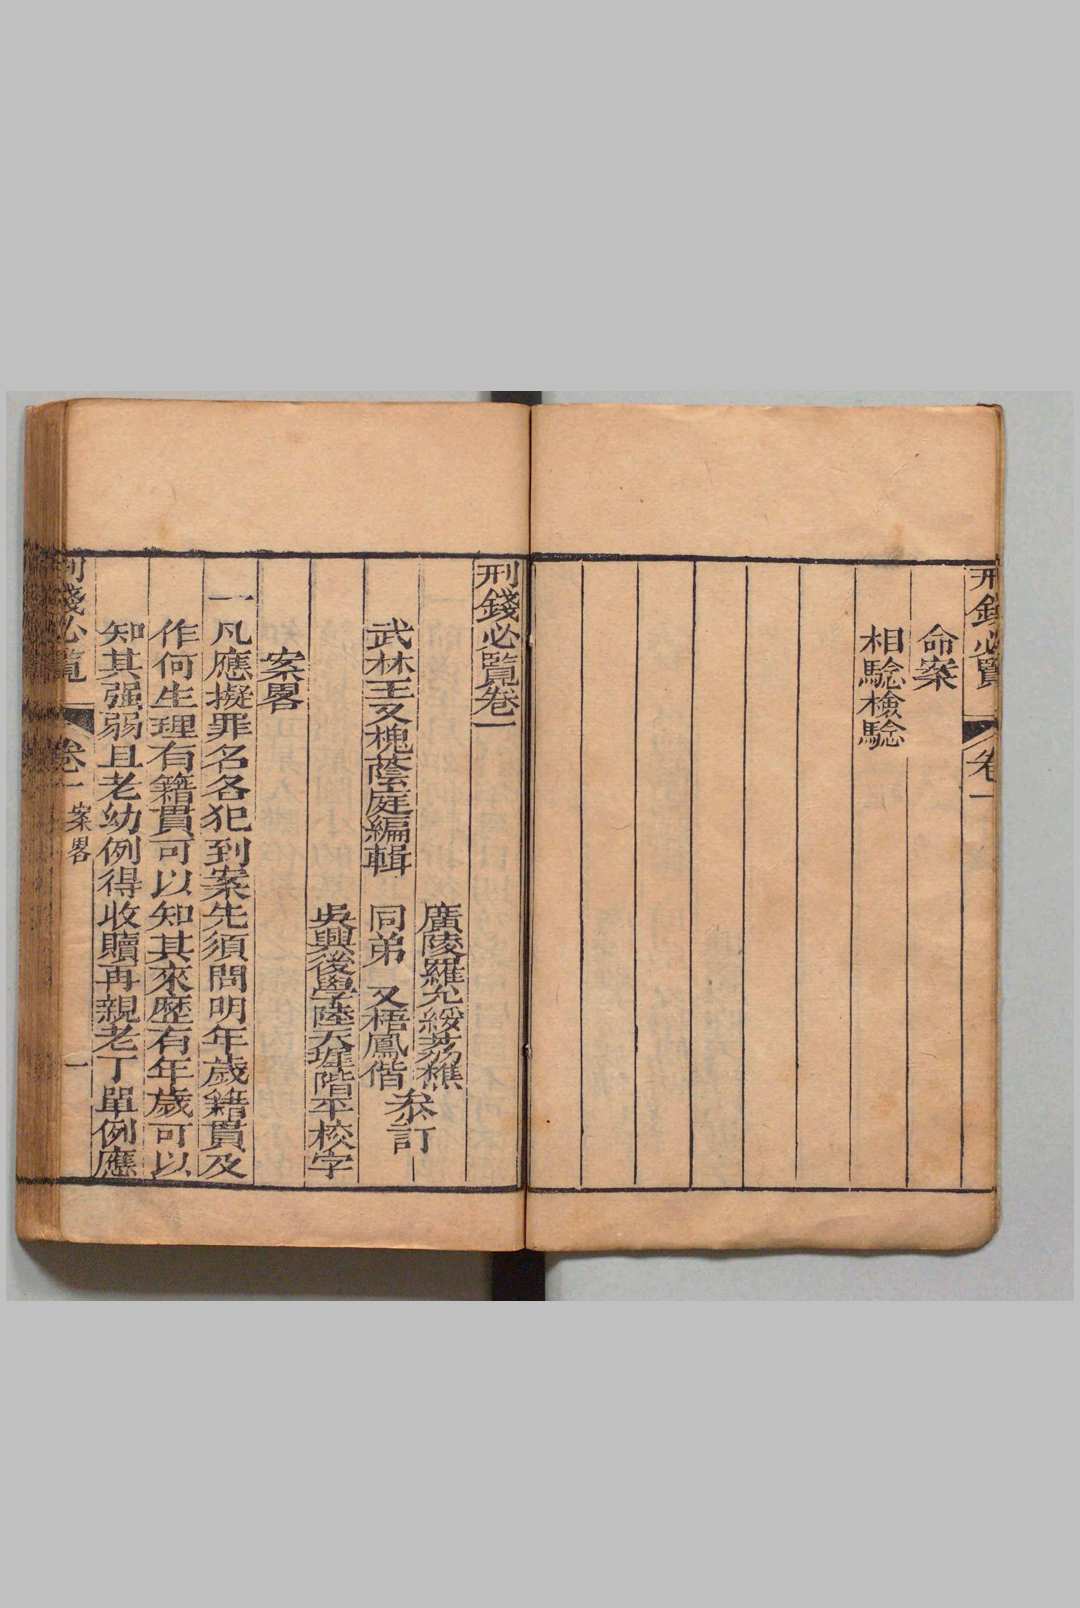 刑錢必覽 卷一
命案
相驗檢驗
刑錢必覽卷一
廣陵羅允綏荔樵
武林王又槐蔭庭編輯 同弟 又梧鳳偕 叅訂
吳興後學陸天墀階平校字
案畧
一凡應擬罪名各犯到案先須問明年歲籍貫及
作何生理有籍貫可以知其來歷有年歲可以
知其强弱且老幼例得收贖再親老丁單例應
刑錢必覽 卷一 案畧 一